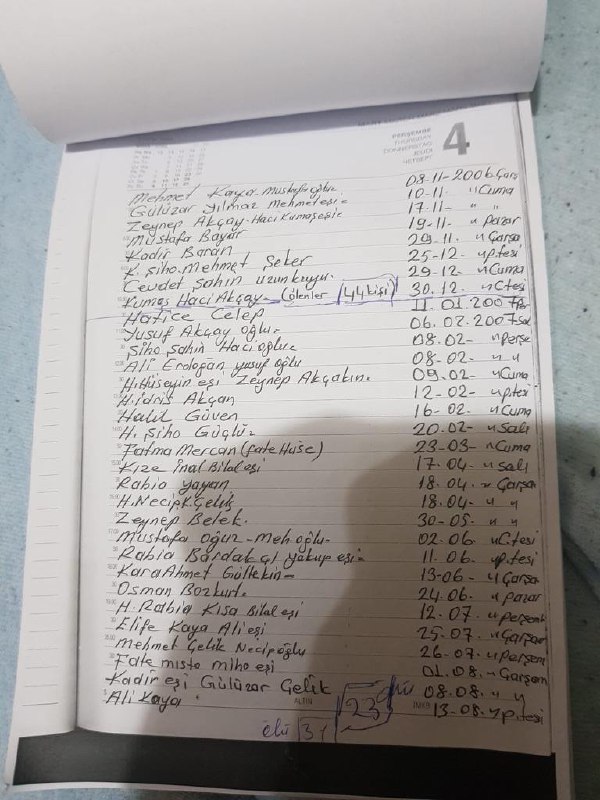 PERŞEMBE
THURSDAY
DONNERSTAG
JEUDI
ЧЕТВЕРГ
4
Mehmet Kaya-Mustafaoğlu 08-11-2006 Çarş
Gülüzar Yılmaz Mehmet eşi- 10-11- " Cuma
Zeynep Akçay-Hacı Kumaş eşi- 17-11- " "
Mustafa Bayar 19-11- " pazar
Kadir Baran 29-11. " Çarşa
K. Şiho.Mehmet Şeker 25-12- " p.tesi
Cevdet Şahin uzunkuyu. 29-12 - " Cuma
Kumaş Hacı Akçay- (ölenler 44 kişi) 30.12- " C.tesi
Hatice Celep 11 01.2007
Yusuf Akçay oğlu- 06.02.2007 Sal
Şiho Şahin Hacıoğlu- 08-02- " perşe
Ali Erdoğan yusuf oğlu 08-02- " "
H.Hüseyin eşi Zeynep Akçakın. 09-02- " Cuma
H.idris Akçan 12-02 - " p.tesi
Halil Güven 16-02- " Cuma
H. Şiho Güçlü- 20-02- " Salı
Fatma Mercan (fate Huse) 23-03- " Cuma
Kize inal Bilal eşi 17.04- " Salı
Rabia yayan 18.04- " Çarşa
H.Necip K.Çelik 18.04- " "
Zeynep Betek. 30-05- " "
Mustafa Oğuz-Meh oğlu- 02.06. " C.tesi
Rabia Bardakçı yakup eşi- 11.06 " p.tesi
Kara Ahmet Gültekin- 13-06- " Çarşa
Osman Bozkurt- 24.06- " pazar
H. Rabia Kısa Bilal eşi 12.07- " perşem
Elife Kaya Ali eşi 25-07. " Çarşa
Mehmet Çelik Necipoğlu 26-07. " perşem
Fate misto miho eşi 01.08. " Çarşam
Kadir eşi Gülüzar Çelik 08.08. " "
Ali Kaya 13-08. " p.tesi
ALTIN
ölü 31 23 ölü